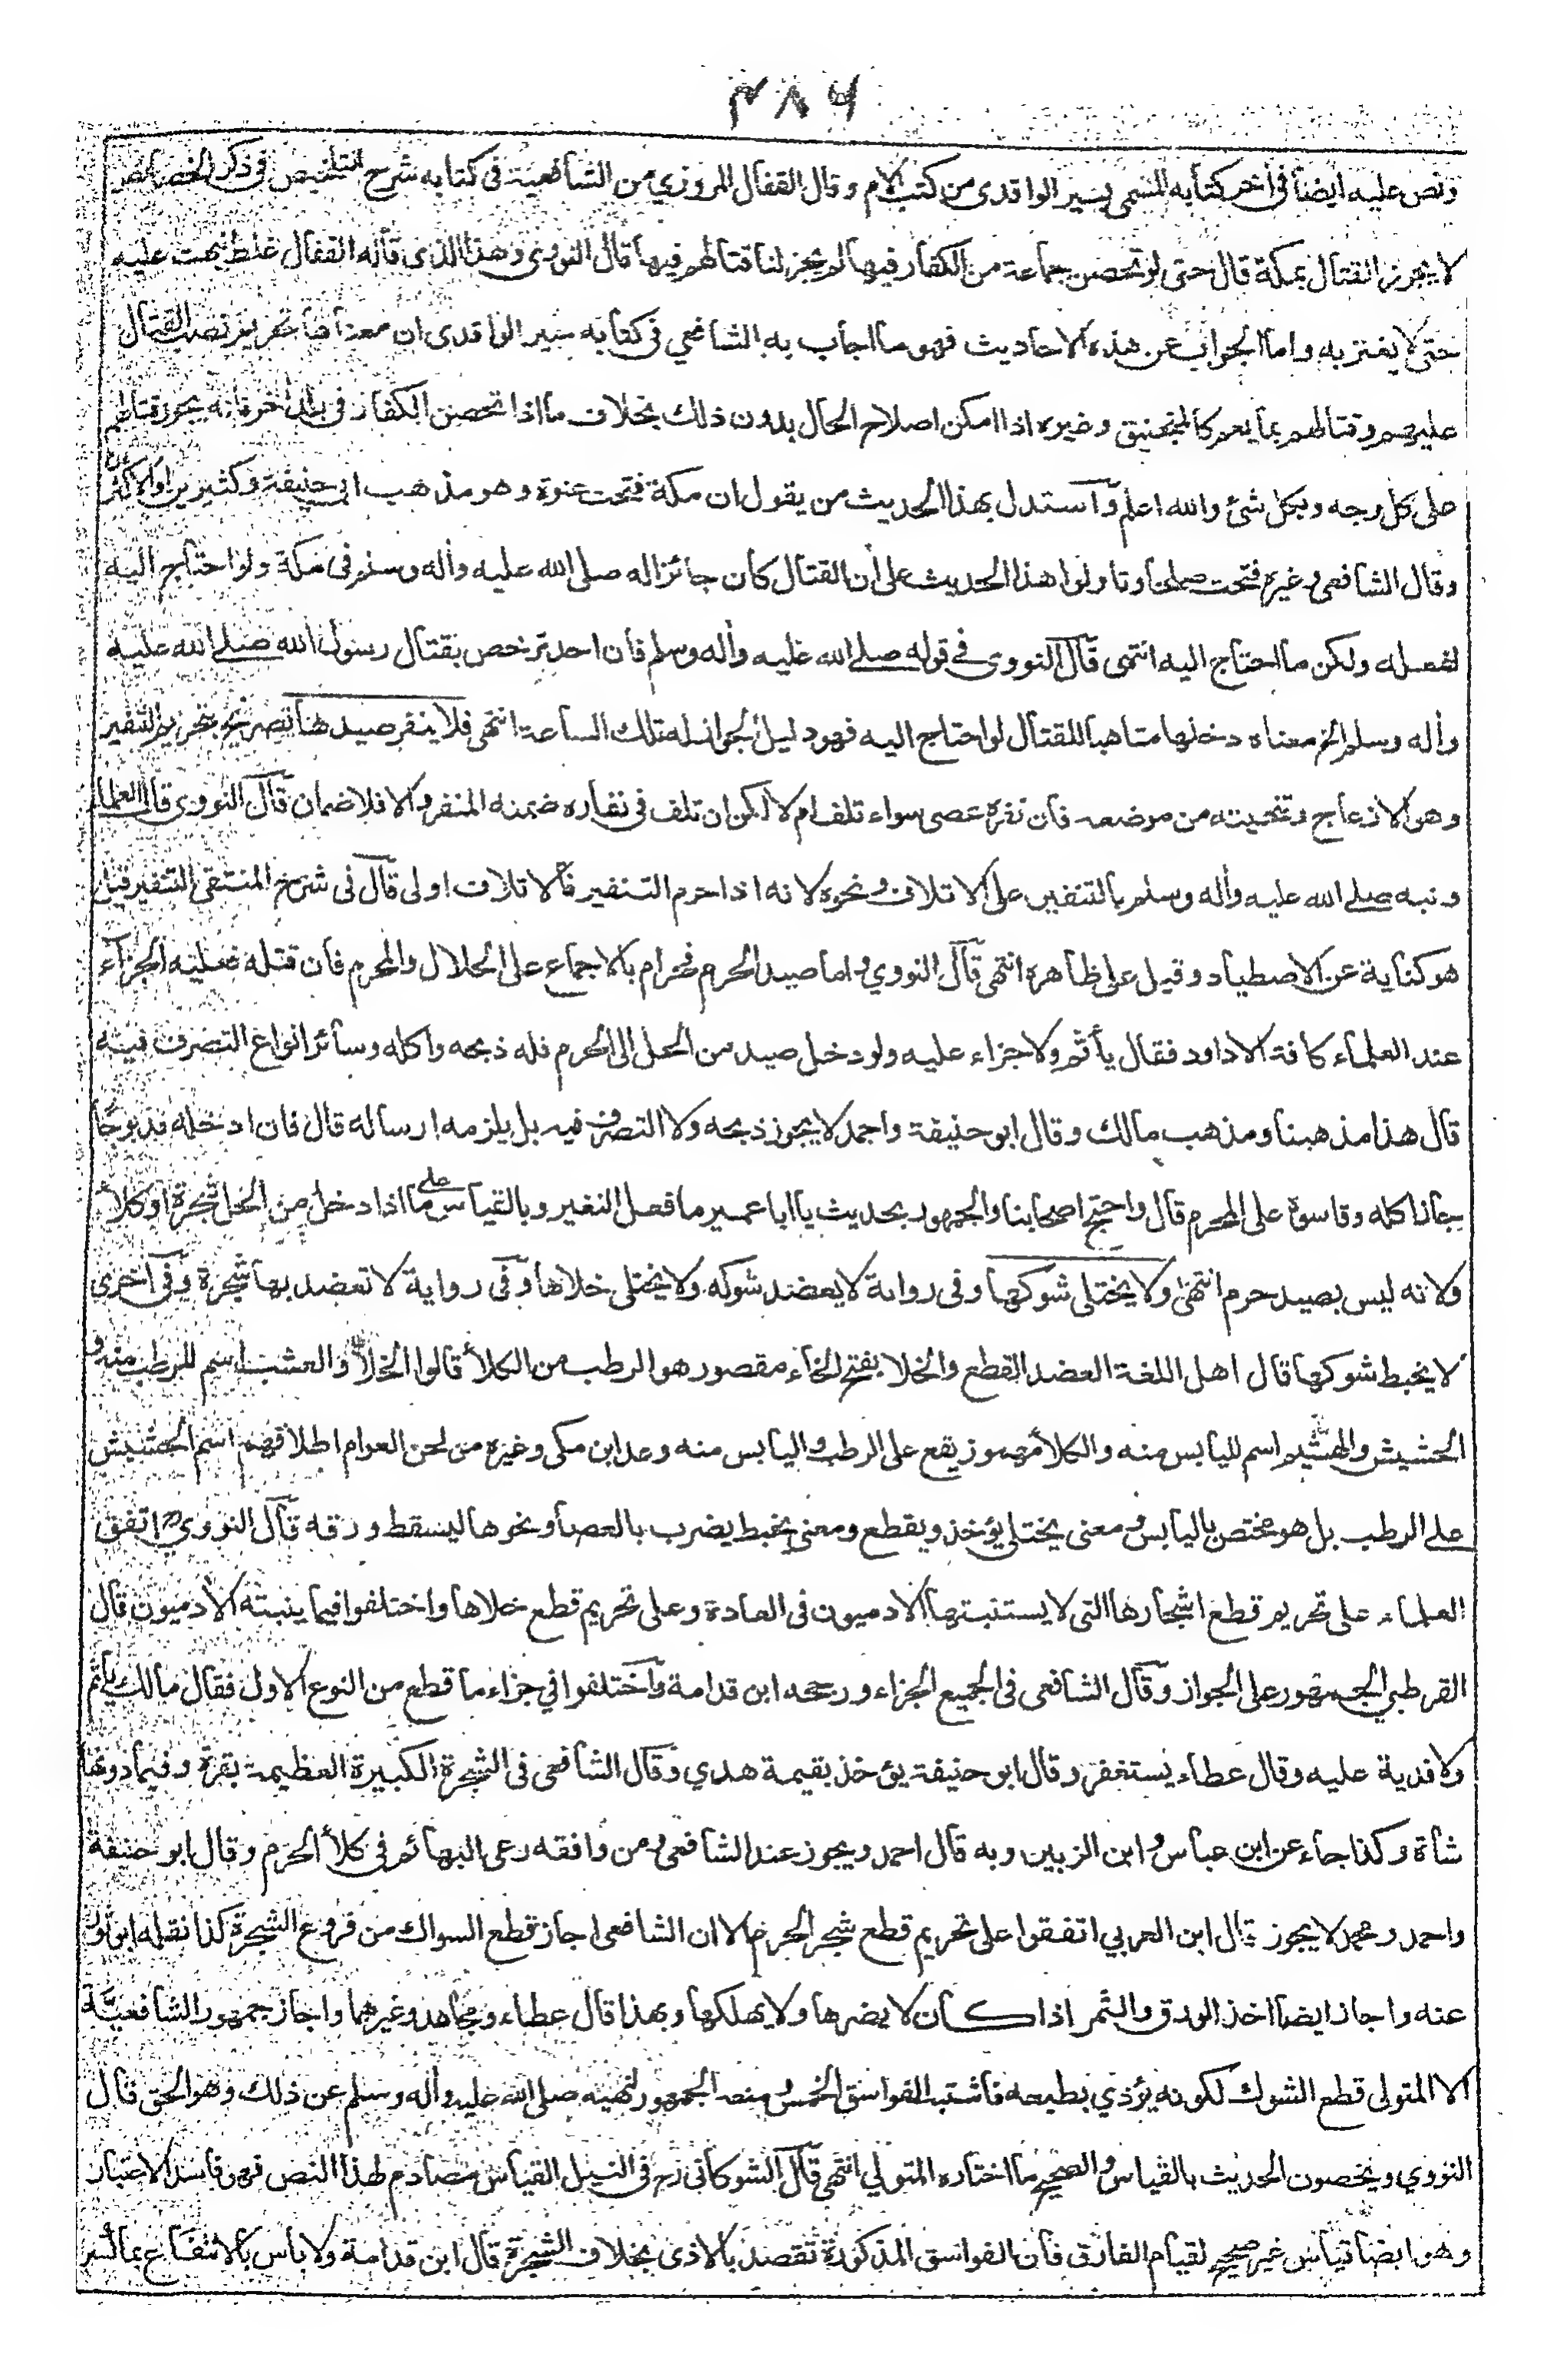 ٣٨٦
ونص عليه ايضا فى أخر كتابه المسمى بسير الواقدى من كتب الام وقال القفال المروزي من الشافعية فى كتابه شرح التلخيص فى ذكر الخصائص
لا يجوز القتال بمكة قال حتى لو تحصن جماعة من الكفار فيها لم يجز لنا قتالهم فيها قال النووى وهذا الذى قاله القفال غلط نبهت عليه
حتى لا يغتر به واما الجواب عن هذه الاحاديث فهو ما اجاب به الشافعي فى كتابه سير الواقدى ان معناها تحريم نصب القتال
عليهم وقتالهم بما يعم كالمنجنيق وغيره اذا امكن اصلاح الحال بدون ذلك بخلاف ما اذا تحصن الكفار فى بلد أخر فانه يجوز قتالهم
على كل وجه وبكل شئ والله اعلم واستدل بهذا الحديث من يقول ان مكة فتحت عنوة وهو مذهب ابى حنيفة وكثيرين او الاكثرين
وقال الشافعى وغيره فتحت صلحا وتاولوا هذا الحديث على أن القتال كان جائزا له صلى الله عليه وأله وسلم فى مكة ولو احتاج اليه
لفعله ولكن ما احتاج اليه انتهى قال النووى فى قوله صلى الله عليه وأله وسلم فان احد ترخص بقتال رسول الله صلى الله عليه
وأله وسلم الخ معناه دخلها متاهبا للقتال لو احتاج اليه فهو دليل لجواز له تلك الساعة انتهى فلا ينفر صيدها تصريح بتحريم التنفير
وهو الازعاج وتنحيته من موضعه فان نفره عصى سواء تلف ام لا لكن ان تلف فى نفاره ضمنه المنفر والا فلا ضمان قال النووى قال العلماء
ونبه صلى الله عليه وأله وسلم بالتنفير على الاتلاف ونحوه لانه اذا حرم التنفير فالاتلاف اولى قال فى شرح المنتقى التنفير قيل
هو كناية عن الاصطياد وقيل على ظاهره انتهى قال النووي واما صيد الحرم فحرام بالاجماع على الحلال والمحرم فان قتله فعليه الجزاء
عند العلماء كافة الا داود فقال يأثم ولا جزاء عليه ولو دخل صيد من الحل الى الحرم فله ذبحه واكله وسائر انواع التصرف فيه
قال هذا مذهبنا ومذهب مالك وقال ابو حنيفة واحمد لا يجوز ذبحه ولا التصرف فيه بل يلزمه ارساله قال فان ادخله مذبوحا
جاز اكله وقاسوه على المحرم قال واحتج اصحابنا والجمهور بحديث يا ابا عمير ما فعل النغير وبالقياس على ما اذا دخل من الحل شجرة او كلأ
ولانه ليس بصيد حرم انتهى ولا يختلى شوكها وفى رواية لا يعضد شوكه ولا يختلى خلاها وفى رواية لا تعضد بها شجرة وفى اخرى
لا يخبط شوكها قال اهل اللغة العضد القطع والخلا بفتح الخاء مقصور هو الرطب من الكلأ قالوا الخلا والعشب اسم للرطب منه و
الحشيش والهشيم اسم لليابس منه والكلأ مهموز يقع على الرطب واليابس منه وعد ابن مكى وغيره من لحن العوام اطلاقهم اسم الحشيش
على الرطب بل هو مختص باليابس ومعنى يختلى يؤخذ ويقطع ومعنى يخبط يضرب بالعصا ونحوها ليسقط ورقه قال النووي اتفق
العلماء على تحريم قطع اشجارها التى لا يستنبتها الادميون فى العادة وعلى تحريم قطع خلاها واختلفوا فيما ينبته الادميون قال
القرطبي الجمهور على الجواز وقال الشافعى فى الجميع الجزاء ورجحه ابن قدامة واختلفوا في جزاء ما قطع من النوع الاول فقال مالك يأثم
ولا فدية عليه وقال عطاء يستغفر وقال ابو حنيفة يؤخذ بقيمة هدي وقال الشافعى فى الشجرة الكبيرة العظيمة بقرة وفيما دونها
شاة وكذا جاء عن ابن عباس وابن الزبير وبه قال احمد ويجوز عند الشافعى ومن وافقه رعى البهائم فى كلأ الحرم وقال ابو حنيفة
واحمد ومحمد لا يجوز قال ابن العربي اتفقوا على تحريم قطع شجر الحرم الا ان الشافعى اجاز قطع السواك من فروع الشجرة كذا نقله ابو ثور
عنه واجاز ايضا اخذ الورق والثمر اذا كان لا يضرها ولا يهلكها وبهذا قال عطاء ومجاهد وغيرهما واجاز جمهور الشافعية
الا المتولى قطع الشوك لكونه يؤذي بطبعه فاشبه الفواسق الخمس ومنعه الجمهور لنهيه صلى الله عليه وأله وسلم عن ذلك وهو الحق قال
النووي ويخصون الحديث بالقياس والصحيح ما اختاره المتولي انتهى قال الشوكانى رح فى النيل القياس مصادم لهذا النص فهو فاسد الاعتبار
وهو ايضا قياس غير صحيح لقيام الفارق فان الفواسق المذكورة تقصد بالاذى بخلاف الشجرة قال ابن قدامة ولا باس بالانتفاع بما انكسر